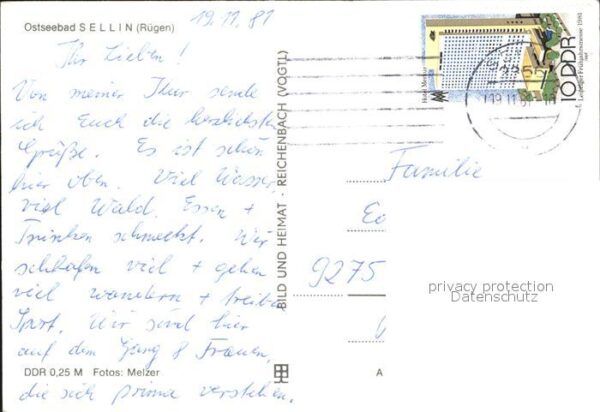 Ostseebad SELLIN (Rügen)
19.11.81
Ihr Lieben!
Von meiner Kur sende
ich Euch die herzlichsten
Grüße. Es ist schön
hier oben. Viel Wasser,
viel Wald. Essen +
Trinken schmeckt. Wir
schlafen viel + gehen
viel wandern + treiben
Sport. Wir sind hier
auf dem Gang 8 Frauen,
die sich prima verstehen.
DDR 0,25 M Fotos: Melzer
BILD UND HEIMAT · REICHENBACH (VOGTL)
Hotel Merkur
10 DDR
Leipziger Frühjahrsmesse 1981
19.11.81
Familie
9275
privacy protection
Datenschutz
A